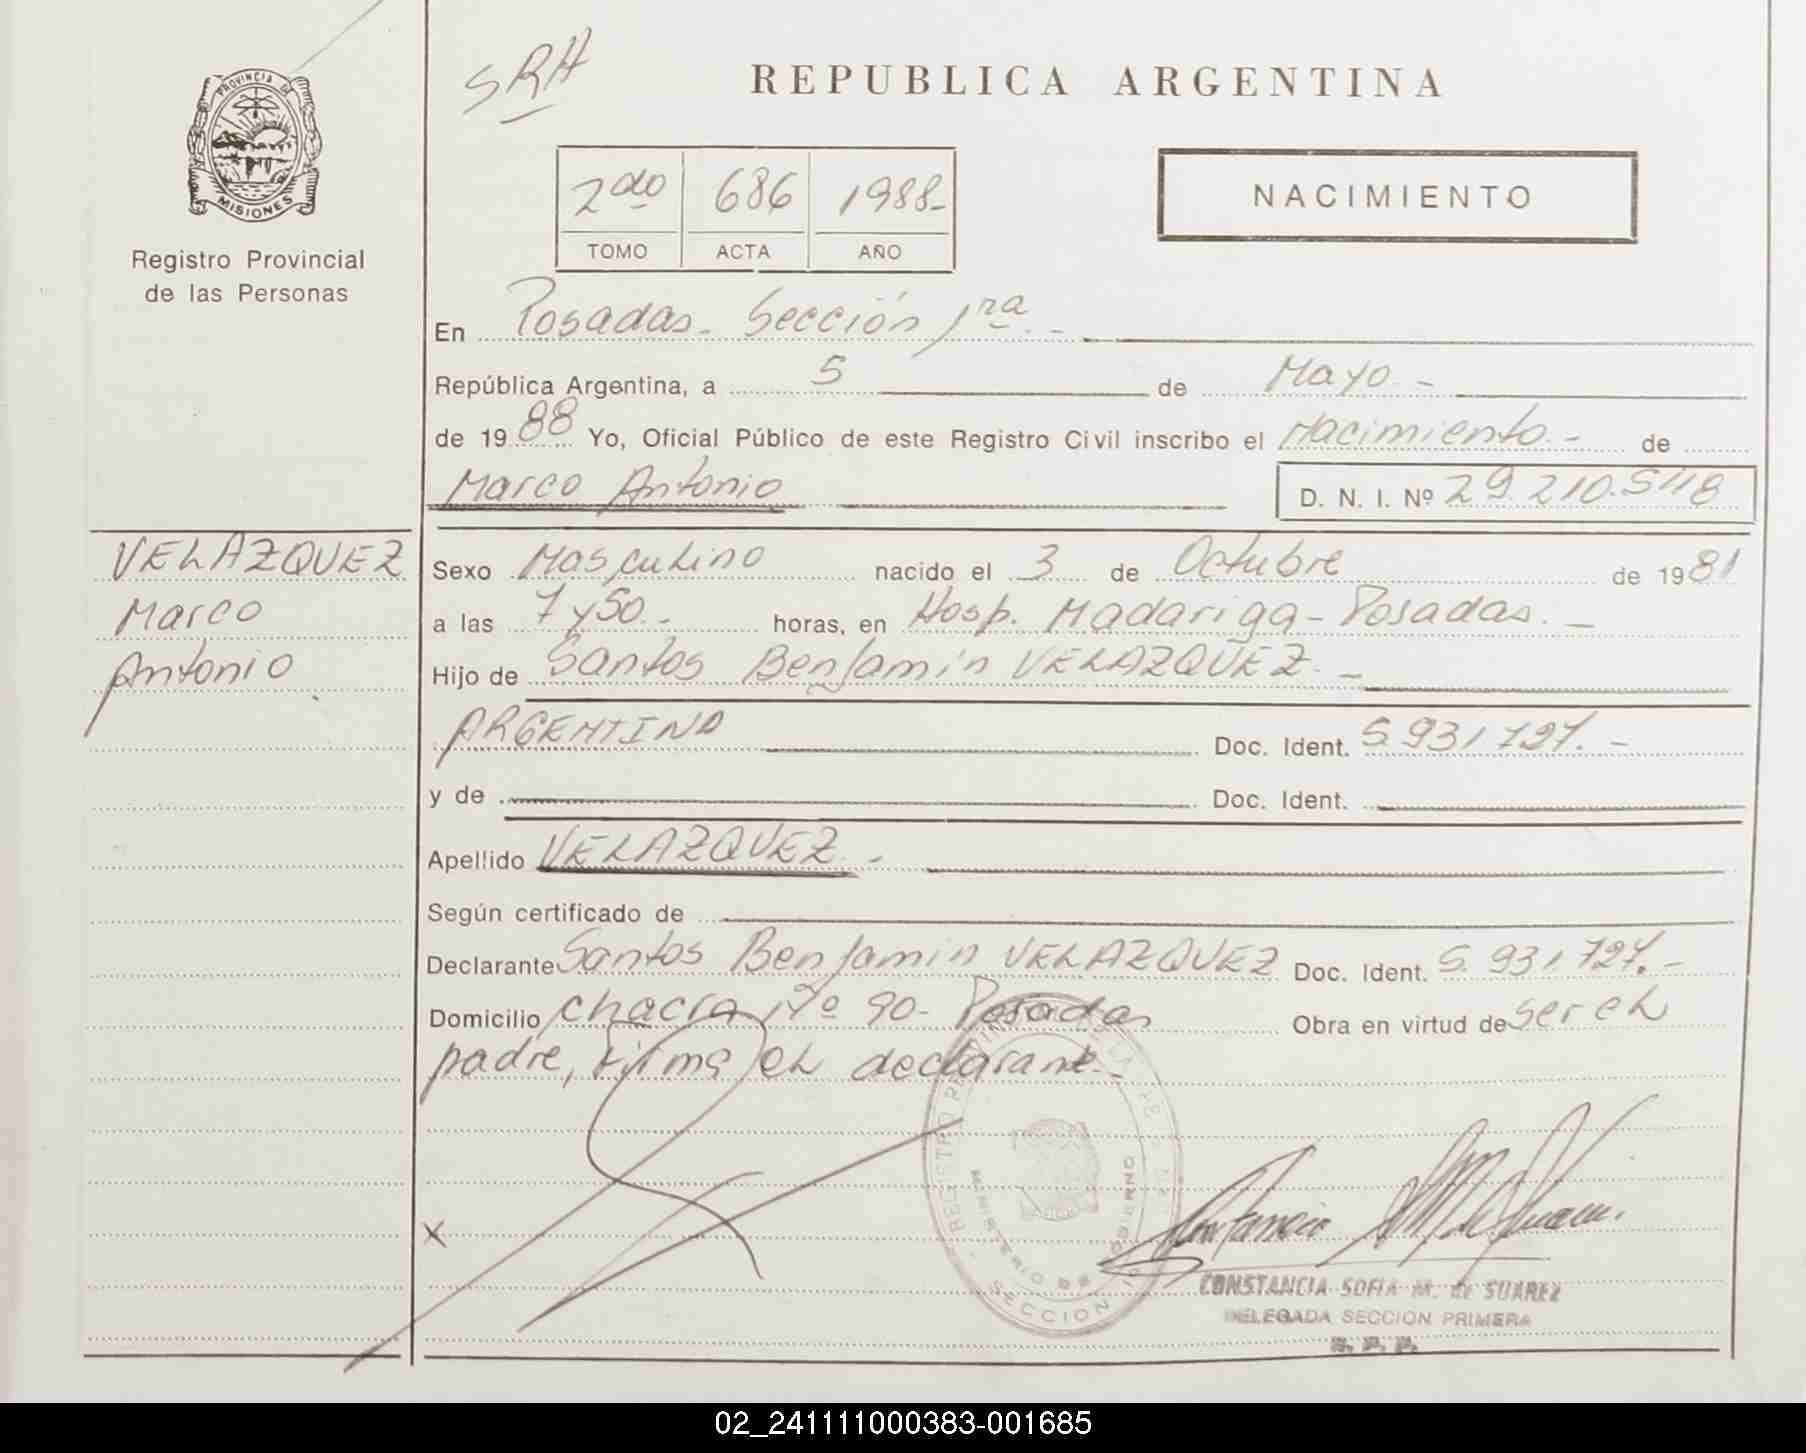 SRH
REPUBLICA ARGENTINA
PROVINCIA DE
MISIONES
Registro Provincial
de las Personas
2do 686 1988-
TOMO ACTA AÑO
NACIMIENTO
En Posadas - Sección 1ra -
República Argentina, a 5 de Mayo -
de 1988 Yo, Oficial Público de este Registro Civil inscribo el Nacimiento - de
Marco Antonio D. N. I. Nº 29.210.548
VELAZQUEZ
Marco
Antonio
Sexo Masculino nacido el 3 de Octubre de 1981
a las 7 y 50 - horas, en Hosp. Madariaga - Posadas. -
Hijo de Santos Benjamin VELAZQUEZ -
ARGENTINO Doc. Ident. 5.931.727. -
y de Doc. Ident.
Apellido VELAZQUEZ -
Según certificado de
Declarante Santos Benjamin VELAZQUEZ Doc. Ident. 5.931.727. -
Domicilio Chacra Nº 90 - Posadas Obra en virtud de ser el
padre, firma el declarante. -
X
MINISTERIO DE GOBIERNO
SECCION
CONSTANCIA SOFIA M. de SUAREZ
DELEGADA SECCION PRIMERA
02_241111000383-001685